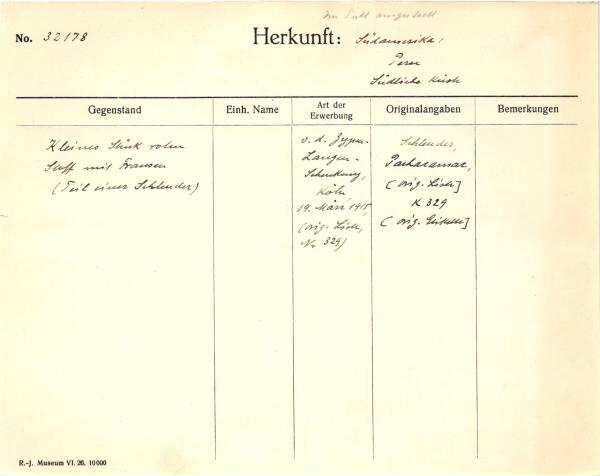 Im Pult ausgestellt
No. 32178
Herkunft: Südamerika;
Peru
Südliche Küste
Gegenstand
Einh. Name
Art der
Erwerbung
Originalangaben
Bemerkungen
Kleines Stück roten
Stoff mit Fransen
(Teil einer Schleuder)
v. d. Zypen-
Langen-
Schenkung,
Köln
19. März 1915,
(orig. Liste,
Nr. 329)
Schleuder,
(orig. Liste]
K 329
(orig. Etikette]
R.-J. Museum VI. 26. 10000